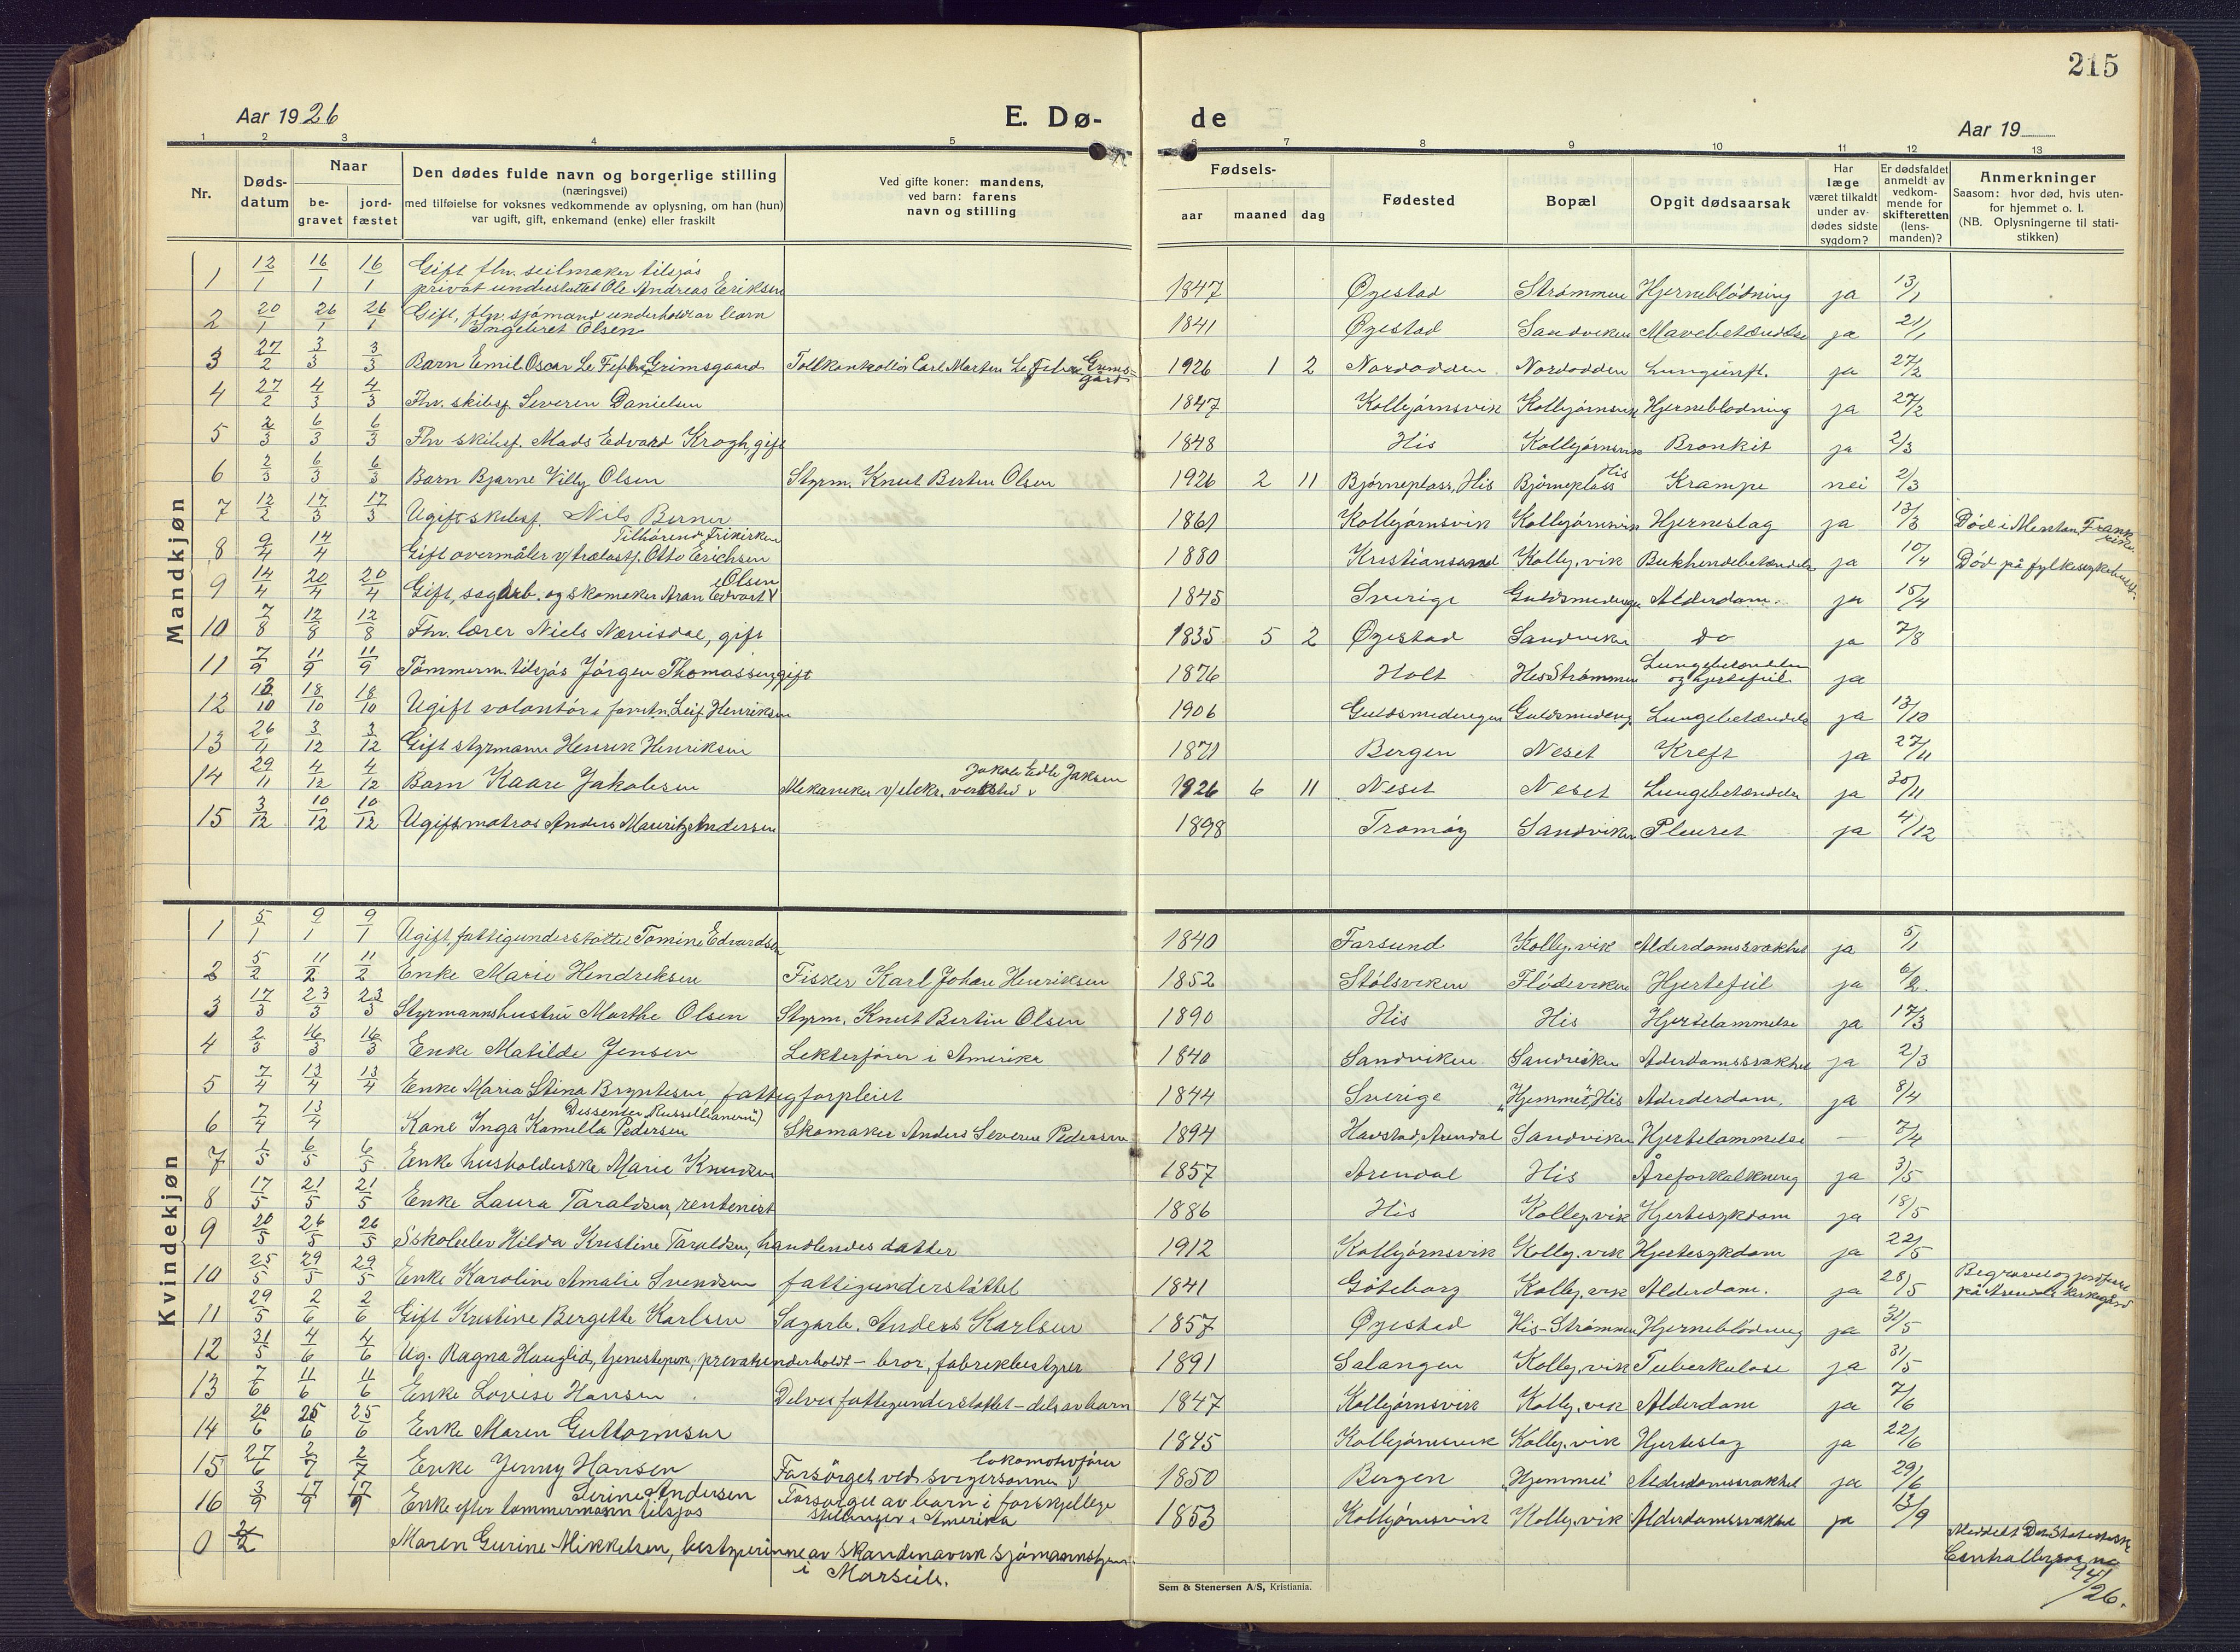 215
Aar 1926
E. Dø-
de
Aar 19
1 2 3 4 5 6 7 8 9 10 11 12 13
Nr.
Døds-
datum
Naar
be-
gravet
jord-
fæstet
Den dødes fulde navn og borgerlige stilling
(næringsvei)
med tilføielse for voksnes vedkommende av oplysning, om han (hun)
var ugift, gift, enkemand (enke) eller fraskilt
Ved gifte koner: mandens,
ved barn: farens
navn og stilling
Fødsels-
aar
maaned
dag
Fødested
Bopæl
Opgit dødsaarsak
Har
læge
været tilkaldt
under av-
dødes sidste
sygdom?
Er dødsfaldet
anmeldt av
vedkom-
mende for
skifteretten
(lens-
manden)?
Anmerkninger
Saasom: hvor død, hvis uten-
for hjemmet o. l.
(NB. Oplysningerne til stati-
stikken)
Mandkjøn
1 12/1 16/1 16/1 Gift fhv. seilmaker tilsjøs
privat understøttet Ole Andreas Eriksen 1847 Øyestad Strømmen Hjerneblødning ja 13/1
2 20/1 26/1 26/1 Gift, fhv. sjømand underholdt av barn
Ingebret Olsen 1841 Øyestad Sandviken Mavebetændelse ja 21/1
3 27/2 3/3 3/3 Barn Emil Oscar Le Fevre Grimsgaard Tollkontrollør Carl Morten Le Fevre Grimsgård 1926 1 2 Nordodden Nordodden Lungeinfl. ja 27/2
4 27/2 4/3 4/3 Fhv. skibsf. Severin Danielsen 1847 Kolbjørnsvik Kolbjørnsvik Hjerneblødning ja 27/2
5 2/3 6/3 6/3 Fhv skibsf. Mads Edvard Krogh, gift 1848 His Kolbjørnsvik Bronkit ja 2/3
6 2/3 6/3 6/3 Barn Bjarne Villy Olsen Styrm. Knut Bertin Olsen 1926 2 11 Bjørneplass, His Bjørneplass His Krampe nei 2/3
7 12/2 17/3 17/3 Ugift skibsf. Nils Berner 1861 Kolbjørnsvik Kolbjørnsvik Hjerneslag ja 13/3 Død i Mentan, Frankrike.
8 9/4 14/4 Tilhørende Frikirken
Gift overmåler v/trælastf. Otto Erichsen 1880 Kristiansand Kolbj.vik Bukhindebetændelse ja 10/4 Død på fylkessykehuset.
9 14/4 20/4 20/4 Gift, sagarb. og skomaker Aron Edvart Olsen 1845 Sverige Guldsmedengen Alderdom. ja 15/4
10 7/8 12/8 12/8 Fhv. lærer Niels Nævisdal, gift 1835 5 2 Øyestad Sandviken do ja 7/8
11 7/9 11/9 11/9 Tømmerm. tilsjøs Jørgen Thomassen, gift 1876 Holt His Strømmen Lungebetændelse
og hjertefeil ja
12 12/10 18/10 18/10 Ugift volontør i forretn. Leif Henriksen 1906 Guldsmedengen Guldsmedeng Lungebetændelse ja 13/10
13 26/11 3/12 3/12 Gift styrmann Henrik Henriksen 1871 Bergen Neset Kreft ja 27/11
14 29/11 4/12 4/12 Barn Kaare Jakobsen Mekaniker v/elekr. verksted 1926 6 11 Neset Neset Lungebetændelse ja 30/11
15 3/12 10/12 10/12 Ugift matros Anders Mauritz Andersen 1898 Tromøy Sandviken Pleurit ja 4/12
Kvindekjøn
1 5/1 9/1 9/1 Ugift, fattigunderstøttet Tomine Edvardsen 1840 Farsund Kolbj.vik Alderdomssvakhet ja 5/1
2 5/2 11/2 11/2 Enke Marie Hendriksen Fisker Karl Johan Henriksen 1852 Stølsviken Flødeviken Hjertefeil ja 6/2.
3 17/3 23/3 23/3 Styrmannshustru Marthe Olsen Styrm. Knut Bertin Olsen 1890 His His Hjertelammelse ja 17/3
4 2/3 16/3 16/3 Enke Matilde Jensen Lekterfører i Amerika 1840 Sandviken Sandviken Alderdomssvakhet ja 2/3
5 7/4 13/4 13/4 Enke Maria Stina Bryntesen, fattigforpleiet 1844 Sverige "Hjemmet" His Alderdom. ja 8/4
6 7/4 13/4 Dissenter (Russellianerne)
Kone Inga Kamilla Pedersen Skomaker Anders Severin Pedersen 1894 Havstad, Arendal Sandviken Hjertelammelse — 7/4
7 1/5 6/5 6/5 Enke husholderske Marie Knudsen 1857 Arendal His Åreforkalkning ja 3/5
8 17/5 21/5 21/5 Enke Laura Taraldsen, rentenist 1886 His Kolbj.vik Hjertesykdom ja 18/5
9 20/5 26/5 26/5 Skoleelev Hilda Kristine Taraldsen, handlendes datter 1912 Kolbjørnsvik Kolbj.vik Hjertesykdom ja 22/5
10 25/5 29/5 29/5 Enke Karoline Amalie Svendsen fattigunderstøttet 1841 Göteborg Kolbj.vik Alderdom. ja 28/5 Begravet og jordfestet
på Arendals kirkegård
11 29/5 2/6 2/6 Gift Kristine Bergitte Karlsen Sagarb. Anders Karlsen 1857 Øyestad His-Strømmen Hjerneblødning ja 31/5
12 31/5 4/6 4/6 Ug. Ragna Hauglid, tjenestepike, privat underholdt – bror, fabrikbestyrer 1891 Salangen Kolbj.vik Tuberkulose ja 31/5
13 7/6 11/6 11/6 Enke Lovise Hansen Delvis fattigunderstøttet – dels av barn 1847 Kolbjørnsvik Kolbj.vik Alderdom ja 7/6
14 20/6 25/6 25/6 Enke Maren Guttormsen 1845 Kolbjørnsvik Kolbj.vik Hjerteslag ja 22/6
15 27/6 2/7 2/7 Enke Jenny Hansen Forsørget ved svigersønnen lokomotivfører 1850 Bergen "Hjemmet" Alderdomssvakhet ja 29/6
16 3/9 17/9 17/9 Serine Andersen
Enke efter tømmermann tilsjøs Forsørget av barn i forskjellige
stillinger i Amerika 1853 Kolbjørnsvik Kolbj.vik Alderdomssvakhet ja 13/9
0 Maren Gurine Mikkelsen, bestyrerinne av skandinavisk sjømannshjem
i Marseile.
Meddelt Det Statistiske
Centralbyrå
/26.
Sem & Stenersen A/S, Kristiania.